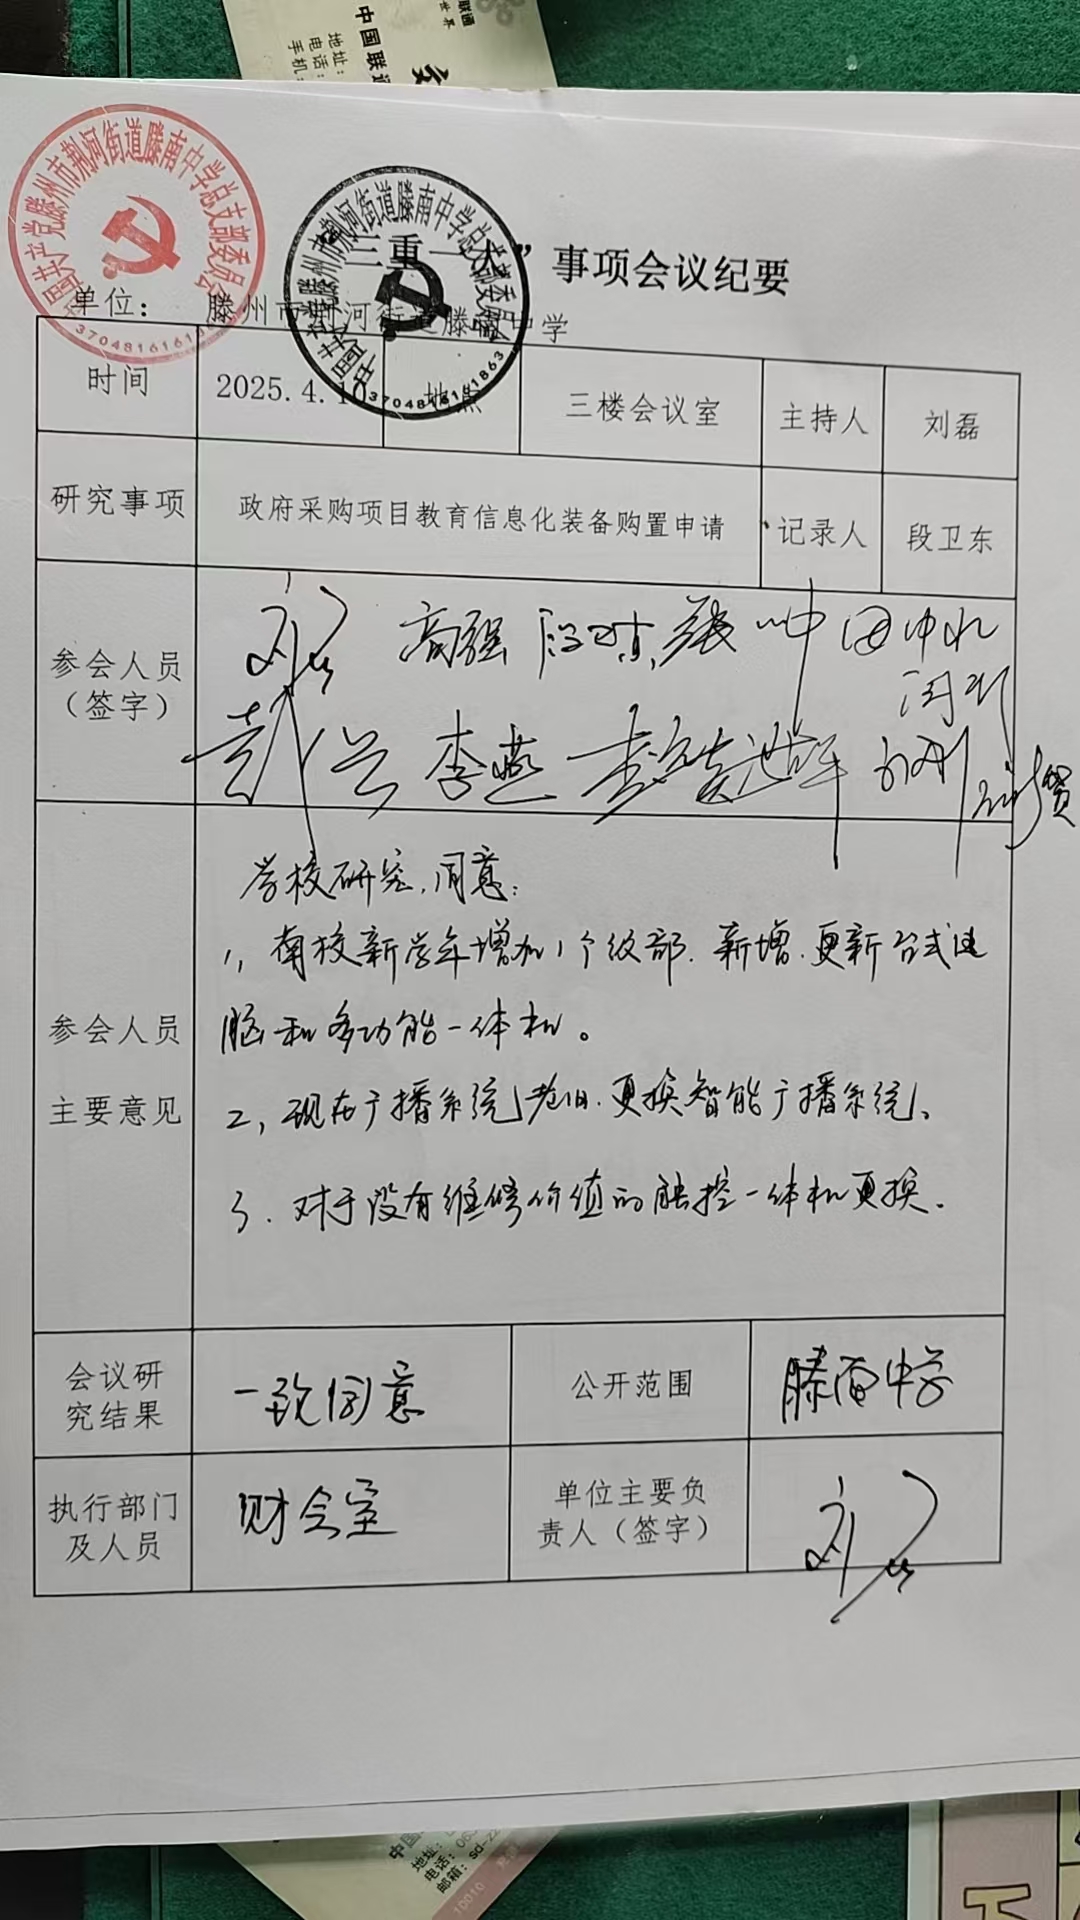 联通
世界
中国联通
地址：
电话：
手机：
中国共产党滕州市荆河街道滕南中学总支部委员会
中国共产党滕州市荆河街道滕南中学总支部委员会
3704816161863
“三重一大”事项会议纪要
单位： 滕州市荆河街道滕南中学
时间 2025.4.10 地点 三楼会议室 主持人 刘磊
研究事项 政府采购项目教育信息化装备购置申请 记录人 段卫东
参会人员
（签字）
刘磊 高强 段卫东 张
李燕
参会人员
主要意见
学校研究，同意：
1、南校新学年增加1个级部，新增、更新台式电
脑和多功能一体机。
2、现在广播系统老旧，更换智能广播系统。
3、对于没有维修价值的触控一体机更换。
会议研
究结果
一致同意
公开范围
滕南中学
执行部门
及人员
财会室
单位主要负
责人（签字）
刘磊
中国
地址：
电话：
邮箱：sd-
10010